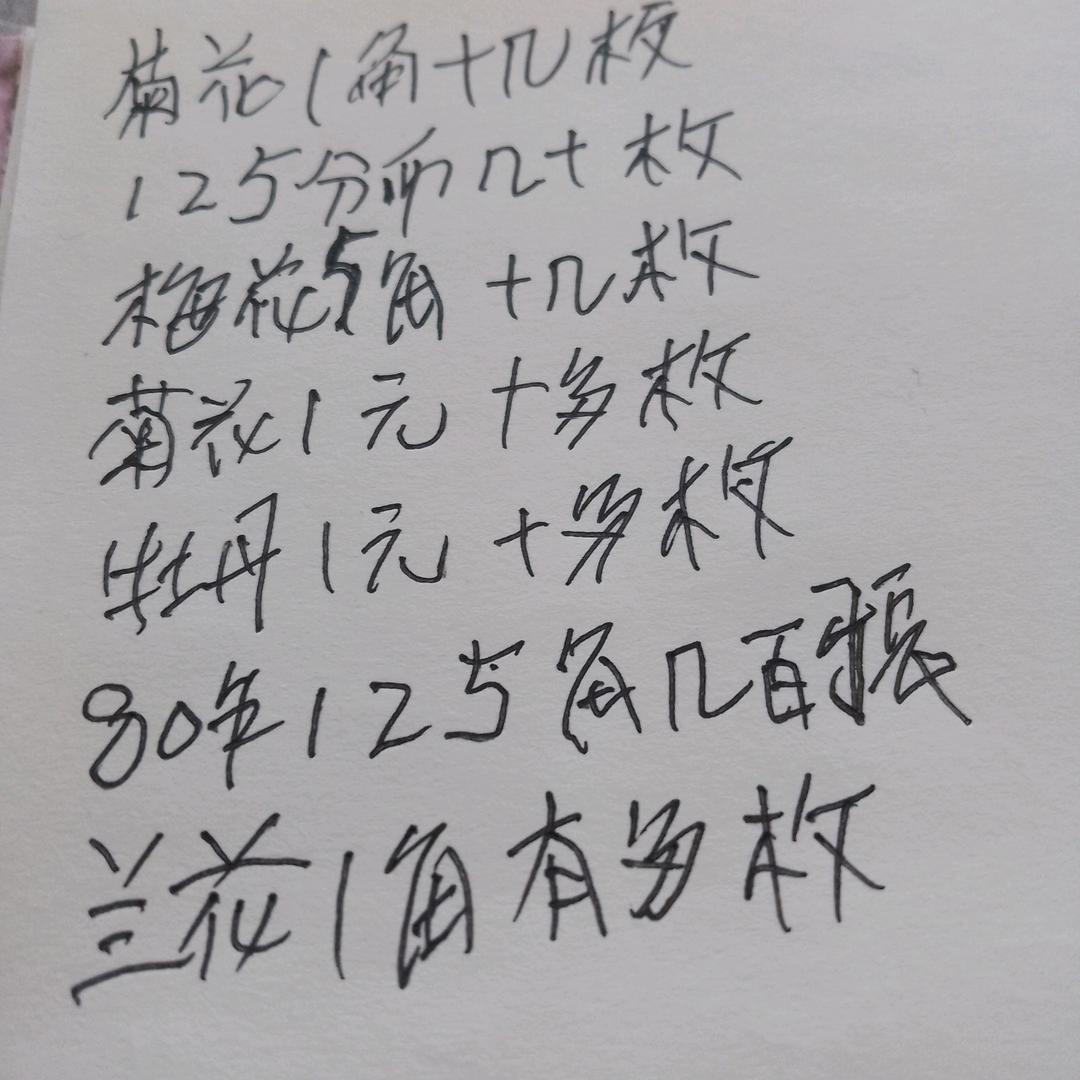 菊花1角十几枚
125分币几十枚
梅花5角十几枚
菊花1元十多枚
牡丹1元十多枚
80年125角几百张
兰花1角有多枚